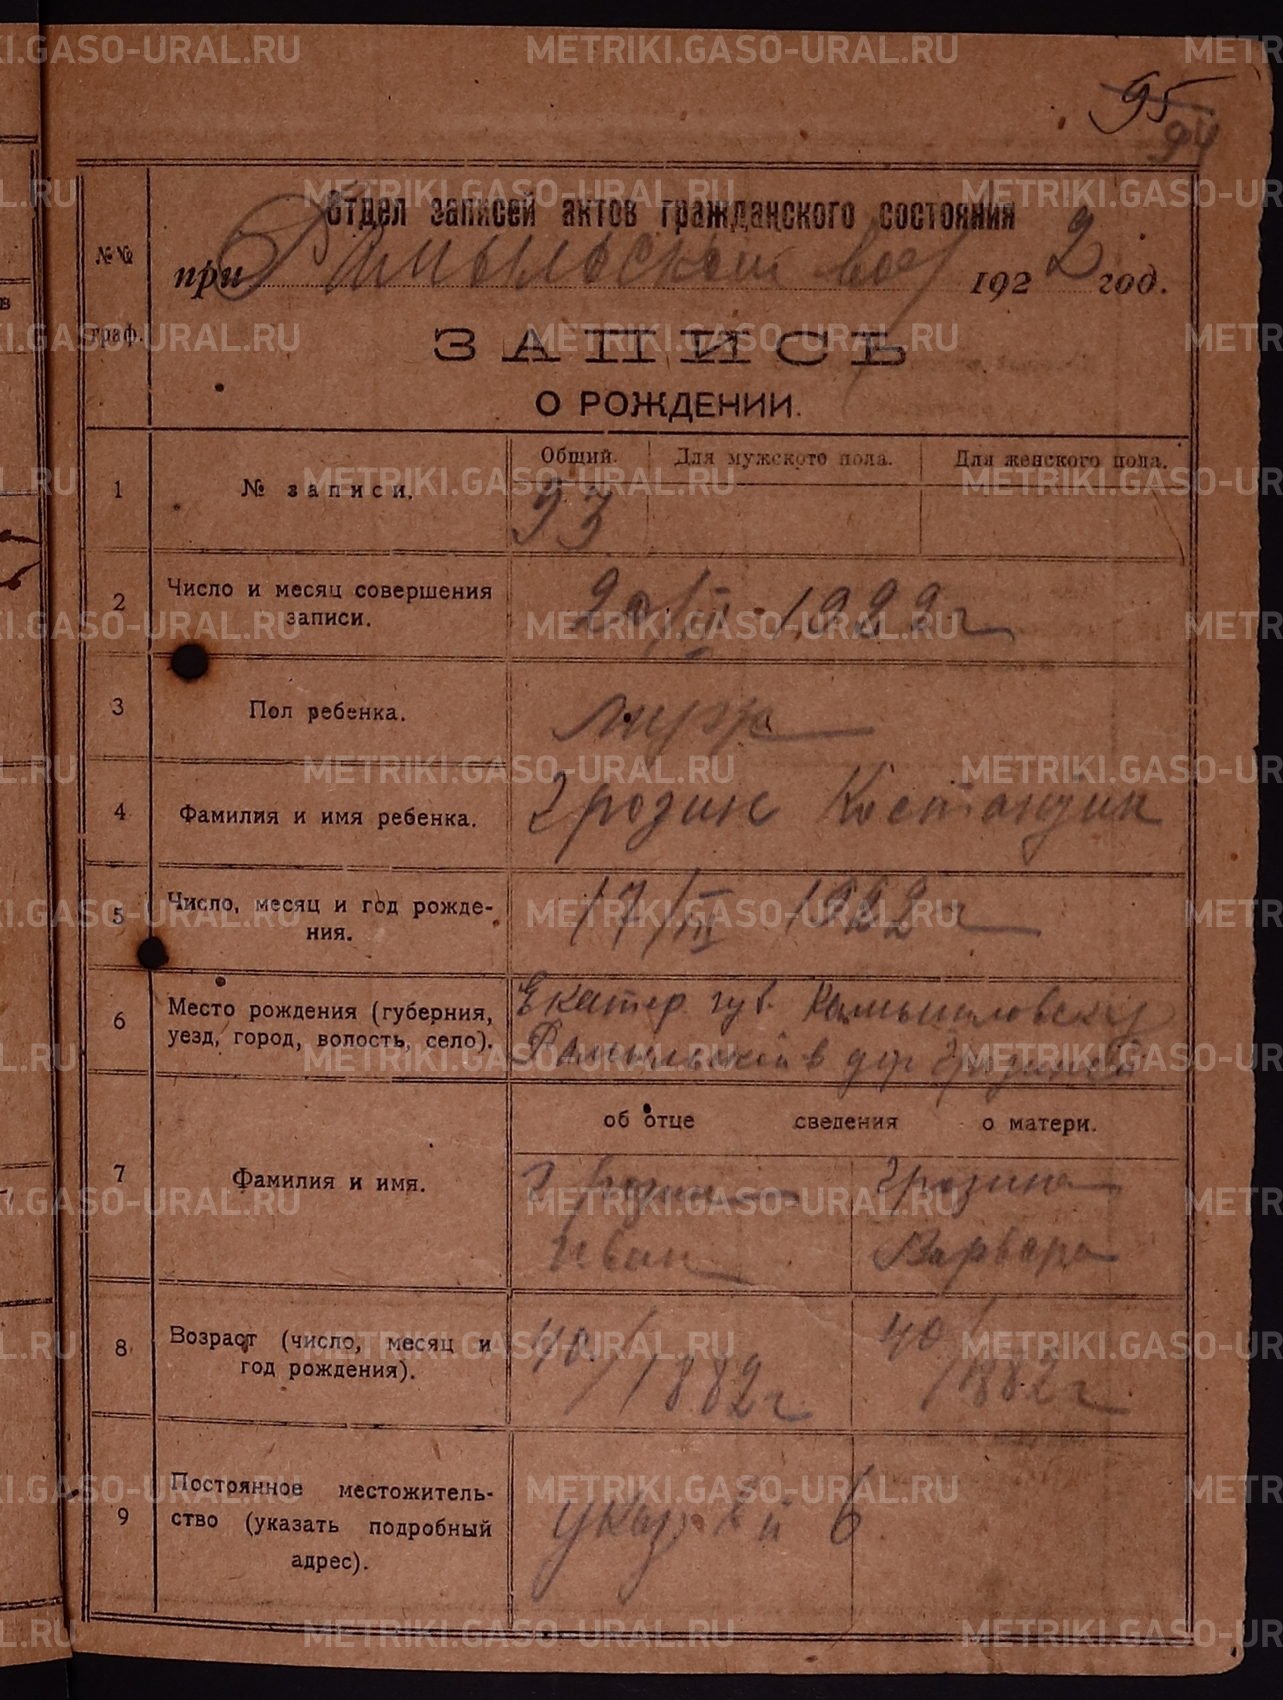 95
94
Отдел записей актов гражданского состояния
№№ граф.
при вол 1922 год.
ЗАПИСЬ
О РОЖДЕНИИ.
1 № записи. Общий. Для мужского пола. Для женского пола.
93
2 Число и месяц совершения записи. 20/III 1922 г
3 Пол ребенка. муж
4 Фамилия и имя ребенка. Грозин Костандин
5 Число, месяц и год рождения. 17/III 1922 г
6 Место рождения (губерния, Екатер губ. Камышловску
уезд, город, волость, село). в дер Грозиной
об отце сведения о матери.
7 Фамилия и имя. Грозин Грозина
Иван Варвара
8 Возраст (число, месяц и 40/ 40/
год рождения). /1882 г /1882 г
9 Постоянное местожитель-
ство (указать подробный
адрес).
указ в п 6
METRIKI.GASO-URAL.RU